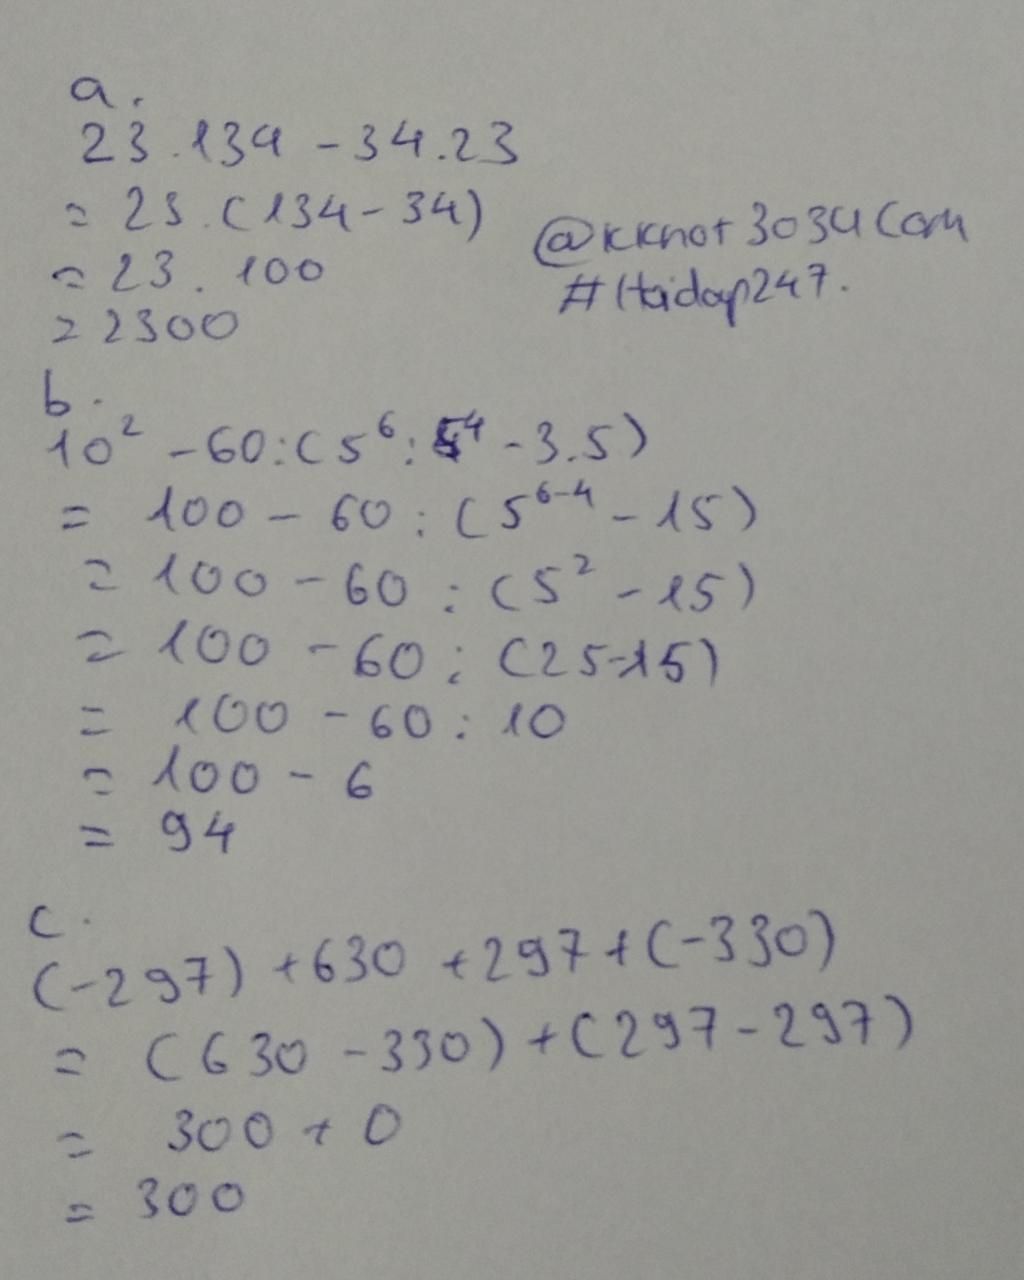 a.
23.134 - 34.23
= 23.(134-34)
= 23. 100
= 2300
@kknot3034Com
#Hoidap247.
b.
10² - 60:(5⁶:5⁴ - 3.5)
= 100 - 60 : (5⁶⁻⁴ - 15)
= 100 - 60 : (5² - 15)
= 100 - 60 : (25-15)
= 100 - 60 : 10
= 100 - 6
= 94
c.
(-297) + 630 + 297 + (-330)
= (630 - 330) + (297 - 297)
= 300 + 0
= 300